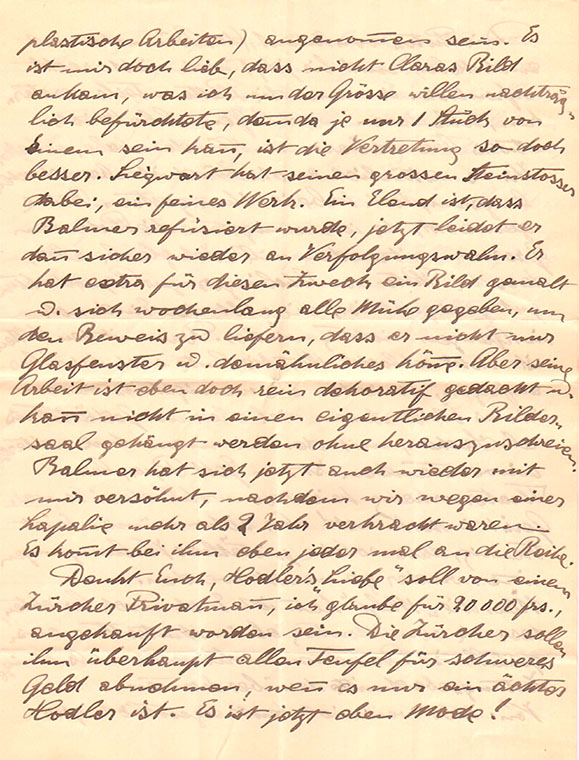 plastische Arbeiten) angenommen sein. Es
ist mir doch lieb, dass nicht Claras Bild
ankam, was ich um der Grösse willen nachträg-
lich befürchtete, denn da je nur 1 Stück von
Einem sein kan̄, ist die Vertretung so doch
besser. Siegwart hat seinen grossen Steinstosser
dabei, ein feines Werk. Ein Elend ist, dass
Balmer refüsiert wurde, jetzt leidet er
dan̄ sicher wieder an Verfolgungswahn. Er
hat extra für diesen Zweck ein Bild gemalt
u. sich wochenlang alle Mühe gegeben, um
den Beweis zu liefern, dass er nicht nur
Glasfenster u. demähnliches kön̄e. Aber seine
Arbeit ist eben doch rein dekoratif gedacht u.
kan̄ nicht in einen eigentlichen Bilder-
saal gehängt werden ohne herauszuschreien.
Balmer hat sich jetzt auch wieder mit
mir versöhnt, nachdem wir wegen einer
Lapalie mehr als 2 Jahr verkracht waren.
Es kom̄t bei ihm eben jeder mal an die Reihe.
Denkt Euch, Hodler's „Liebe" soll von einem
Zürcher Privatman̄, ich glaube für 20 000 frs.,
angekauft worden sein. Die Zürcher sollen
ihm überhaupt allen Teufel für schweres
Geld abnehmen, wen̄ es nur ein ächter
Hodler ist. Es ist jetzt eben Mode!